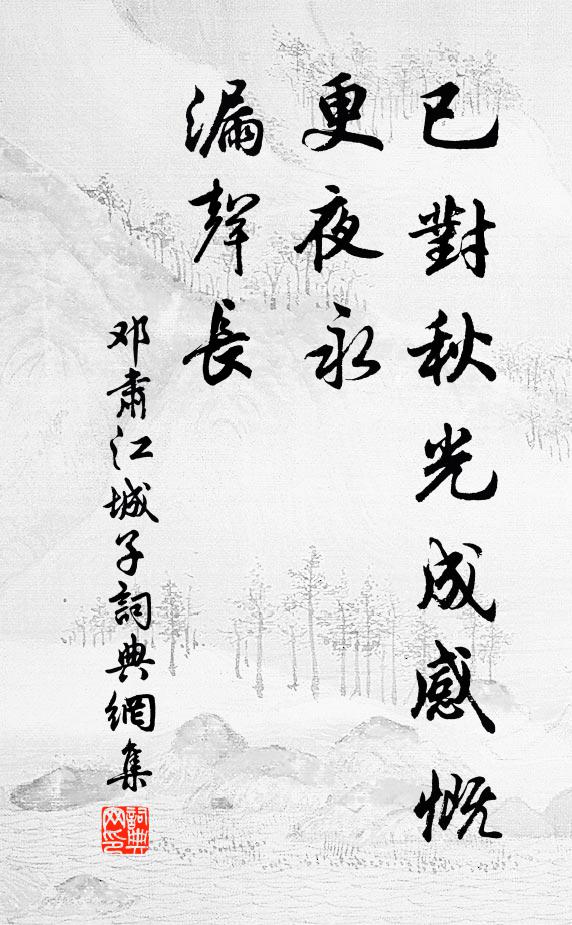 已對秋光成感慨
更夜永
漏聲長
邓肅江城子詞典網集
詞典網印